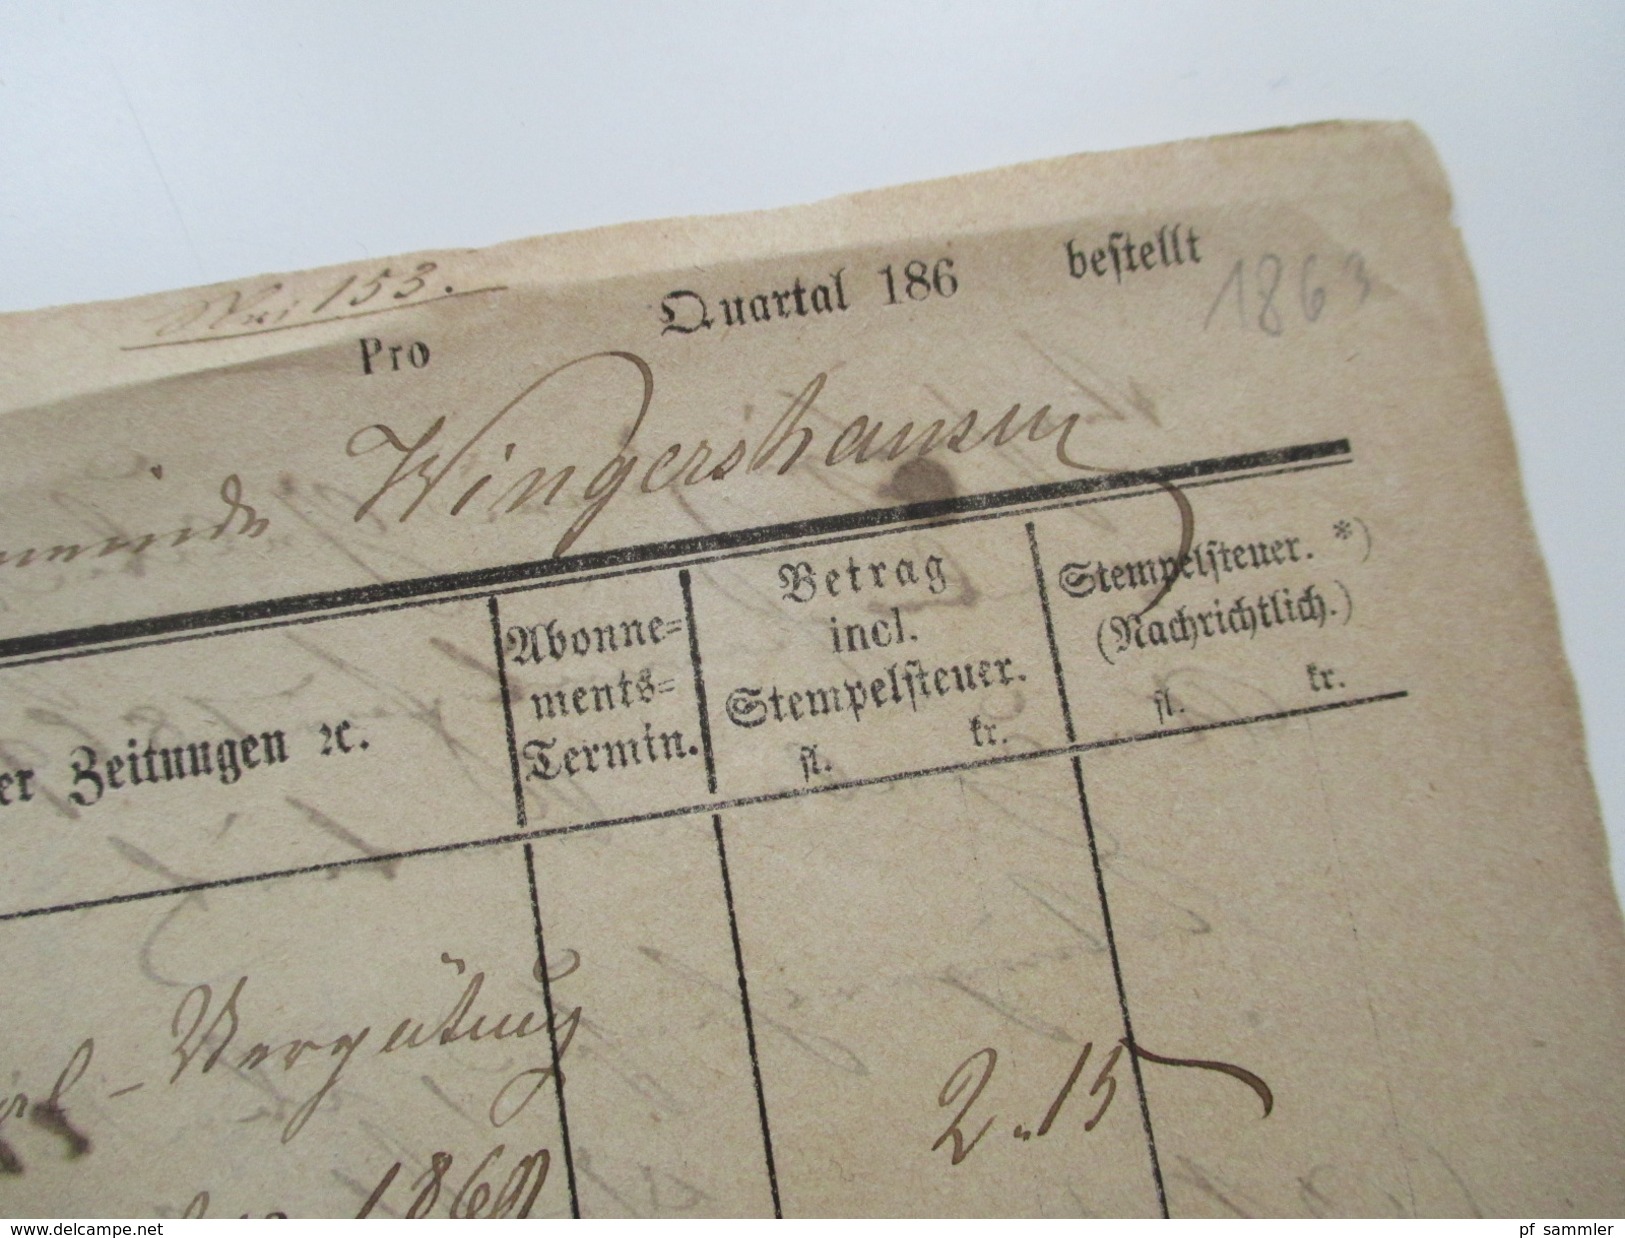 153.
1863
Pro Quartal 186 bestellt
Wingershausen
er Zeitungen ꝛc.
Abonne=
ments=
Termin.
Betrag
incl.
Stempelsteuer.
fl. kr.
Stempelsteuer. *)
(Nachrichtlich.)
fl. kr.
Vergütung
2 „ 15
1860
www.delcampe.net
pf sammler